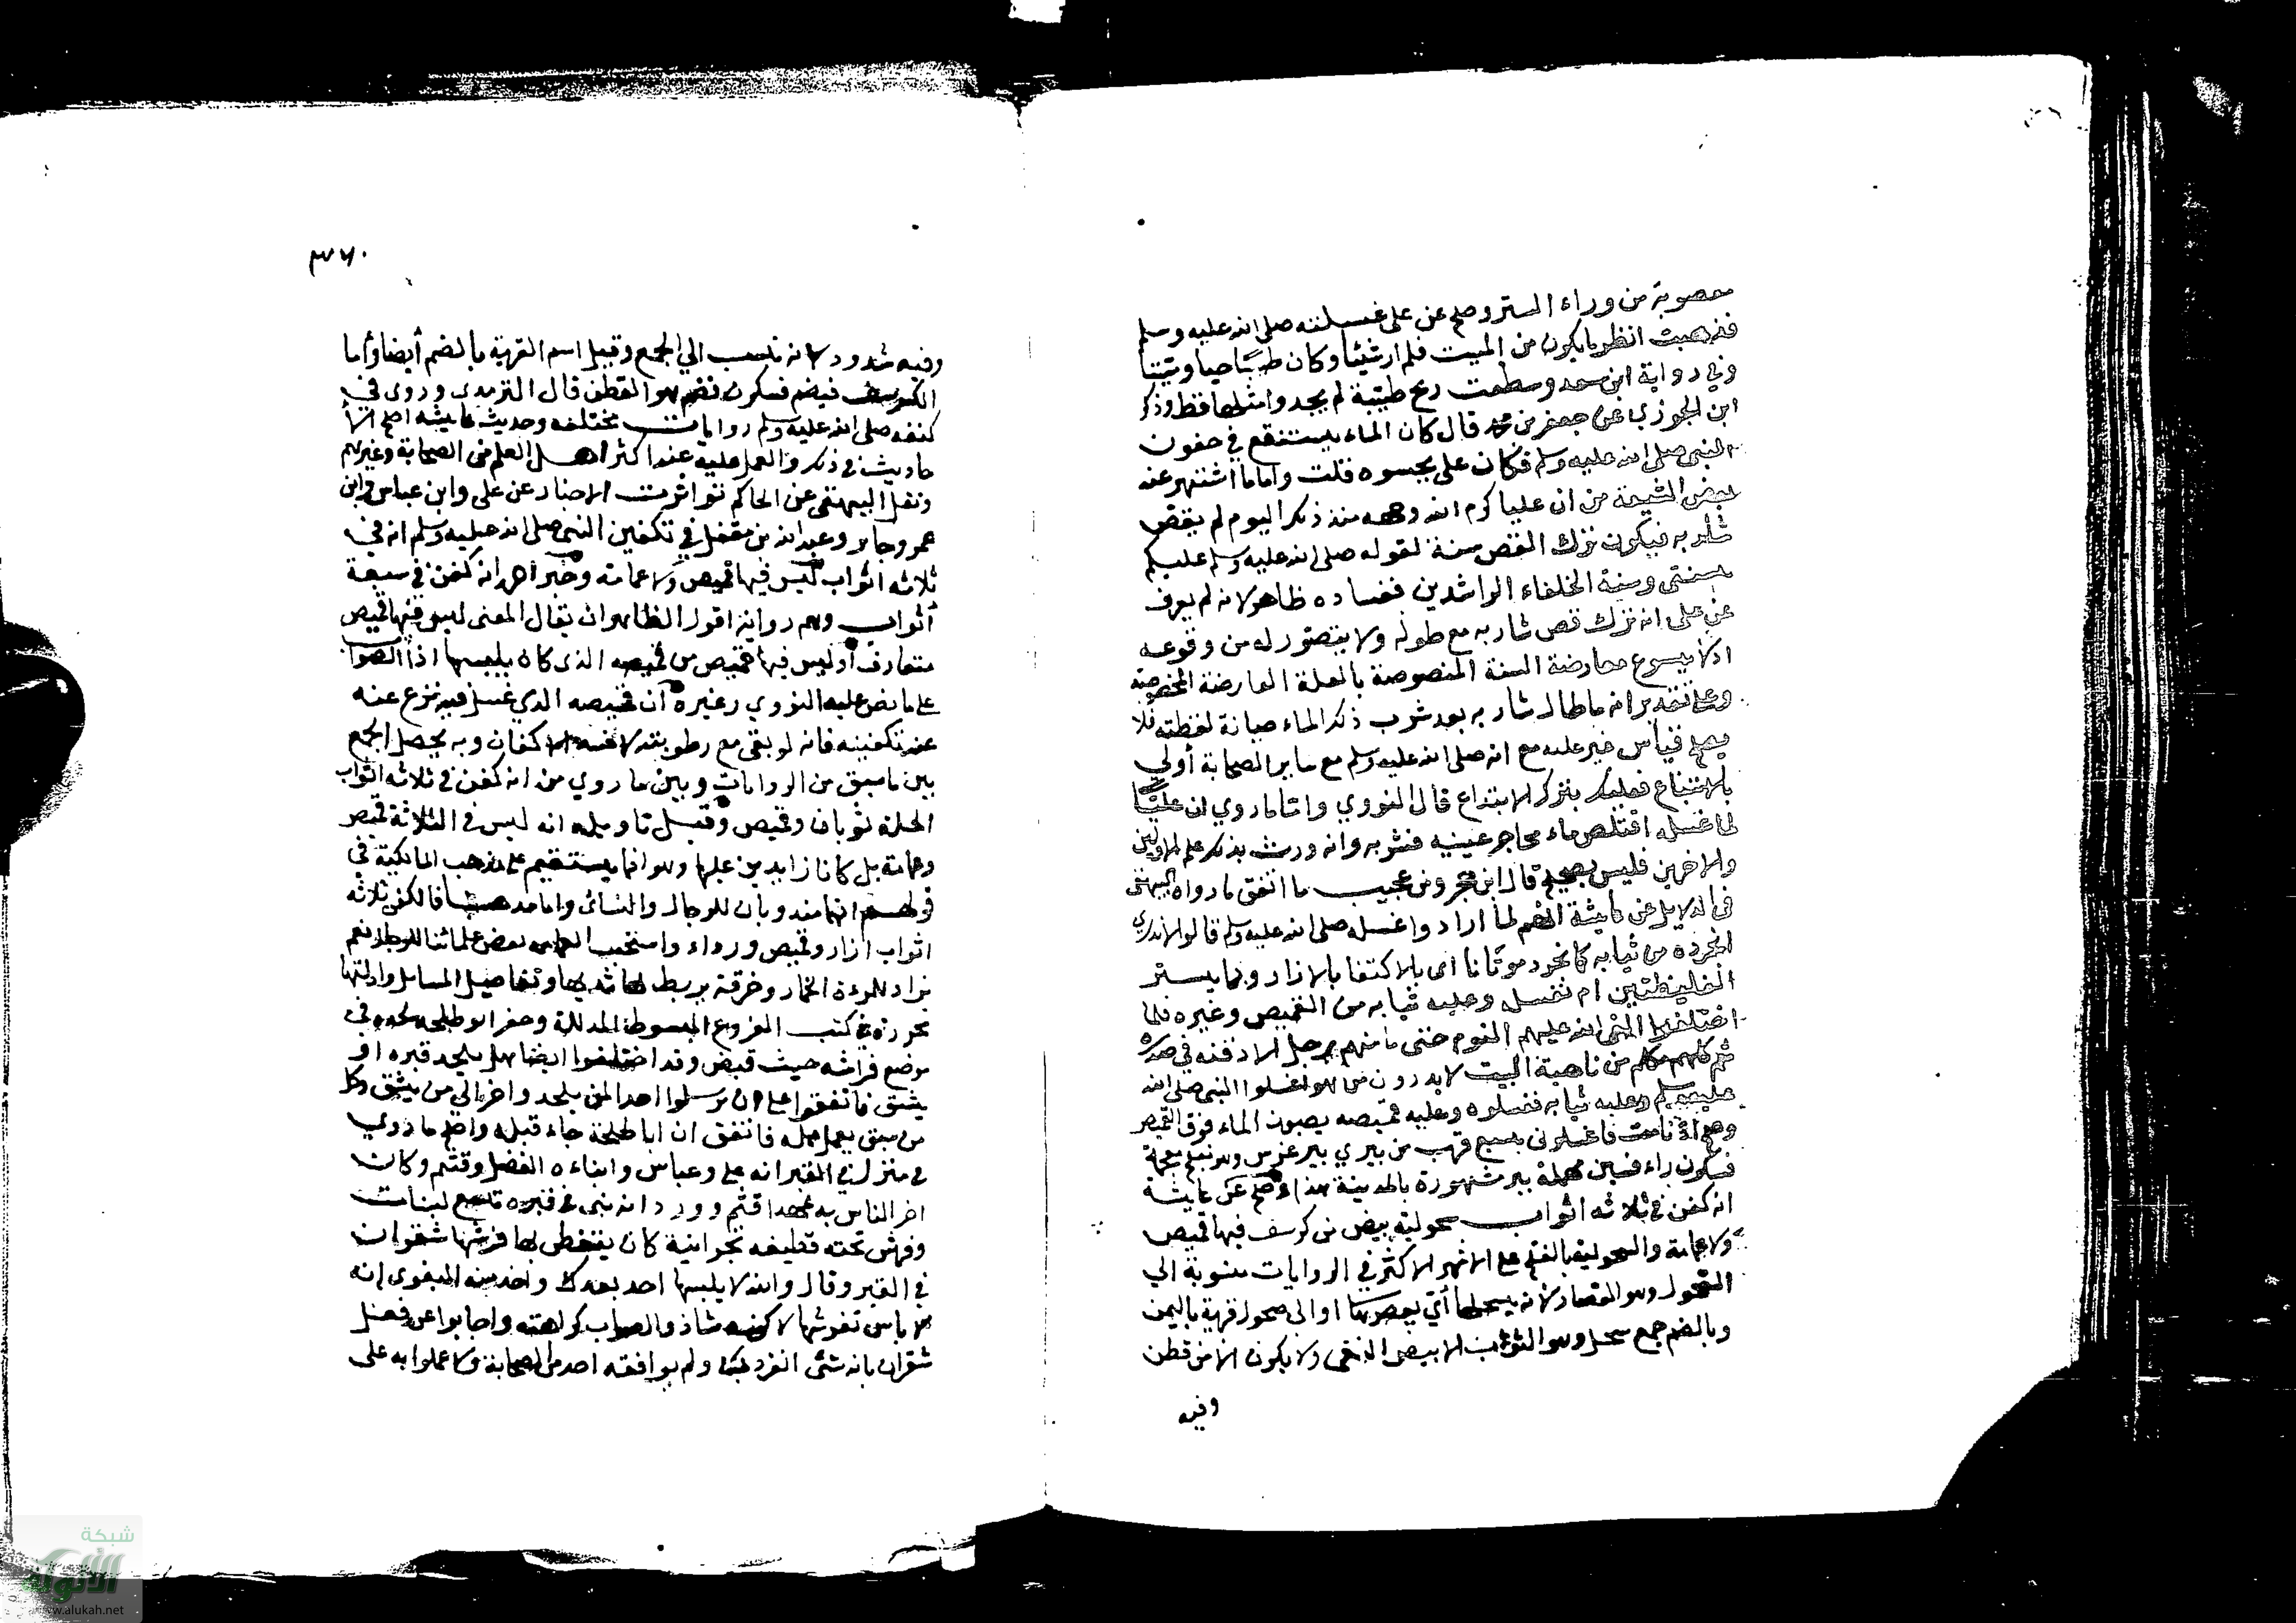 معصوبة من وراء الستر وصح عن علي غسلته صلى الله عليه وسلم
فذهبت انظر ما يكون من الميت فلم ار شيئا وكان طيبا حيا وميتا
وفي رواية ابن سعد وسطعت ريح طيبة لم يجدوا مثلها قط وذكر
ابن الجوزي عن جعفر بن محمد قال كان الماء يستنقع في جفون
النبي صلى الله عليه وسلم فكان علي يحسوه قلت واما ما اشتهر عند
بعض الشيعة من ان عليا كرم الله وجهه منذ ذلك اليوم لم يقص
شاربه فيكون ترك القص سنة لقوله صلى الله عليه وسلم عليكم
بسنتي وسنة الخلفاء الراشدين ففساده ظاهر لانه لم يعرف
عن علي انه ترك قص شاربه مع طوله ولا يتصور له من وقوعه
اذ لا يسوغ معارضة السنة المنصوصة بالعلة العارضة المخصوصة
وعلى تقدير انه ما طال شاربه بعد شرب ذلك الماء صيانة لفظته فلا
يصح قياس غيره عليه مع انه صلى الله عليه وسلم مع ساير الصحابة أولى
بالاتباع فعليك بترك الابتداع قال النووي واما ما روي ان عليا
لما غسله اقتلص ماء محاجر عينيه فشربه وانه ورث بذلك علم الاولين
والاخرين فليس بصحيح قال ابن حجر ومن عجيب ما اتفق ما رواه البيهقي
في الدلايل عن عايشة انهم لما ارادوا غسله صلى الله عليه وسلم قالوا لا ندري
انجرده من ثيابه كما نجرد موتانا اى بالاكتفا بالازار وبما يستر
الغليظتين ام نغسله وعليه ثيابه من القميص وغيره فلما
اختلفوا القى الله عليهم النوم حتى ما منهم رجل الا ذقنه في صدره
ثم كلمهم مكلم من ناحية البيت لا يدرون من هو اغسلوا النبي صلى الله
عليه وسلم وعليه ثيابه فغسلوه وعليه قميصه يصبون الماء فوق القميص
وصح اذا انا مت فاغسلوني بسبع قرب من بيري بير غرس وهو بفتح معجمة
فسكون راء فسين مهملة بير مشهورة بالمدينة هذا وصح عن عايشة
انه كفن في ثلاثه اثواب سحولية بيض من كرسف فيها قميص
ولا عمامة والسحولية بالفتح على الاشهر الاكثر في الروايات منسوبة الى
السحول وهو القصار لانه يسحلها أي يقصرها او الى سحول قرية باليمن
وبالضم جمع سحل وهو الثوب الابيض النقي ولا يكون الا من قطن
وفيه
٣٦٠
وفيه شذوذ لانه نسب الي الجمع وقيل اسم القرية بالضم أيضا وأما
الكرسف فبضم فسكون فضم هو القطن قال الترمذي وروى في
كفنه صلى الله عليه وسلم روايات مختلفه وحديث عايشه اصح الا
حاديث في ذلك والعمل عليه عند اكثر اهل العلم من الصحابة وغيرهم
ونقل البيهقي عن الحاكم تواترت الاخبار عن علي وابن عباس وابن
عمر وجابر وعبد الله بن مغفل في تكفين النبي صلى الله عليه وسلم انه في
ثلاثه اثواب ليس فيها قميص ولا عمامة وخبر احمد انه كفن في سبعة
أثواب وهم رواية اقول الظاهر ان يقال المعنى ليس فيها قميص
متعارف أو ليس فيها قميص من قميصه الذي كان يلبسها اذ الصواب
على ما نص عليه النووي وغيره أن قميصه الذي غسل فيه نزع عنه
عند تكفينه فانه لو بقى مع رطوبته لافسد الاكفان وبه يحصل الجمع
بين ما سبق من الروايات وبين ما روي من انه كفن في ثلاثه اثواب
الحلة ثوبان وقميص وقيل تاويله انه ليس في الثلاثة قميص
وعمامة بل كانا زايدين عليها وهو انما يستقيم على مذهب المالكية في
قولهم انهما مندوبان للرجال والنسائ واما مذهبنا فالكفن ثلاثه
اثواب ازار وقميص ورداء واستحب العمامه بعض علمائنا للرجل نعم
يزاد للمرءة الخمار وخرقة يربط بها ثديها وتفاصيل المسايل وادلتها
محررة في كتب الفروع المبسوطة المدللة وحفر ابو طلحه لحده في
موضع فراشه حيث قبض وقد اختلفوا ايضا هل يلحد قبره او
يشق فاتفقوا على ان يرسلوا احدا لمن يلحد واخر الي من يشق وكل
من سبق يعمل عمله فاتفق ان ابا طلحة جاء قبله واصح ما روي
في من نزل في القبر انه علي وعباس وابناءه الفضل وقثم وكان
اخر الناس به عهدا قثم وورد انه بنى في قبره تسع لبنات
وفرش تحته قطيفه نجرانية كان يتغطى بها فرشها شقران
في القبر وقال والله لا يلبسها احد بعدك واخذ منه البغوي انه
لا باس بفرشها لكنه شاذ والصواب كراهته واجابوا عن فعل
شقران بانه شئ انفرد به ولم يوافقه احد من الصحابة ولا عملوا به على
شبكة
الألوكة
www.alukah.net